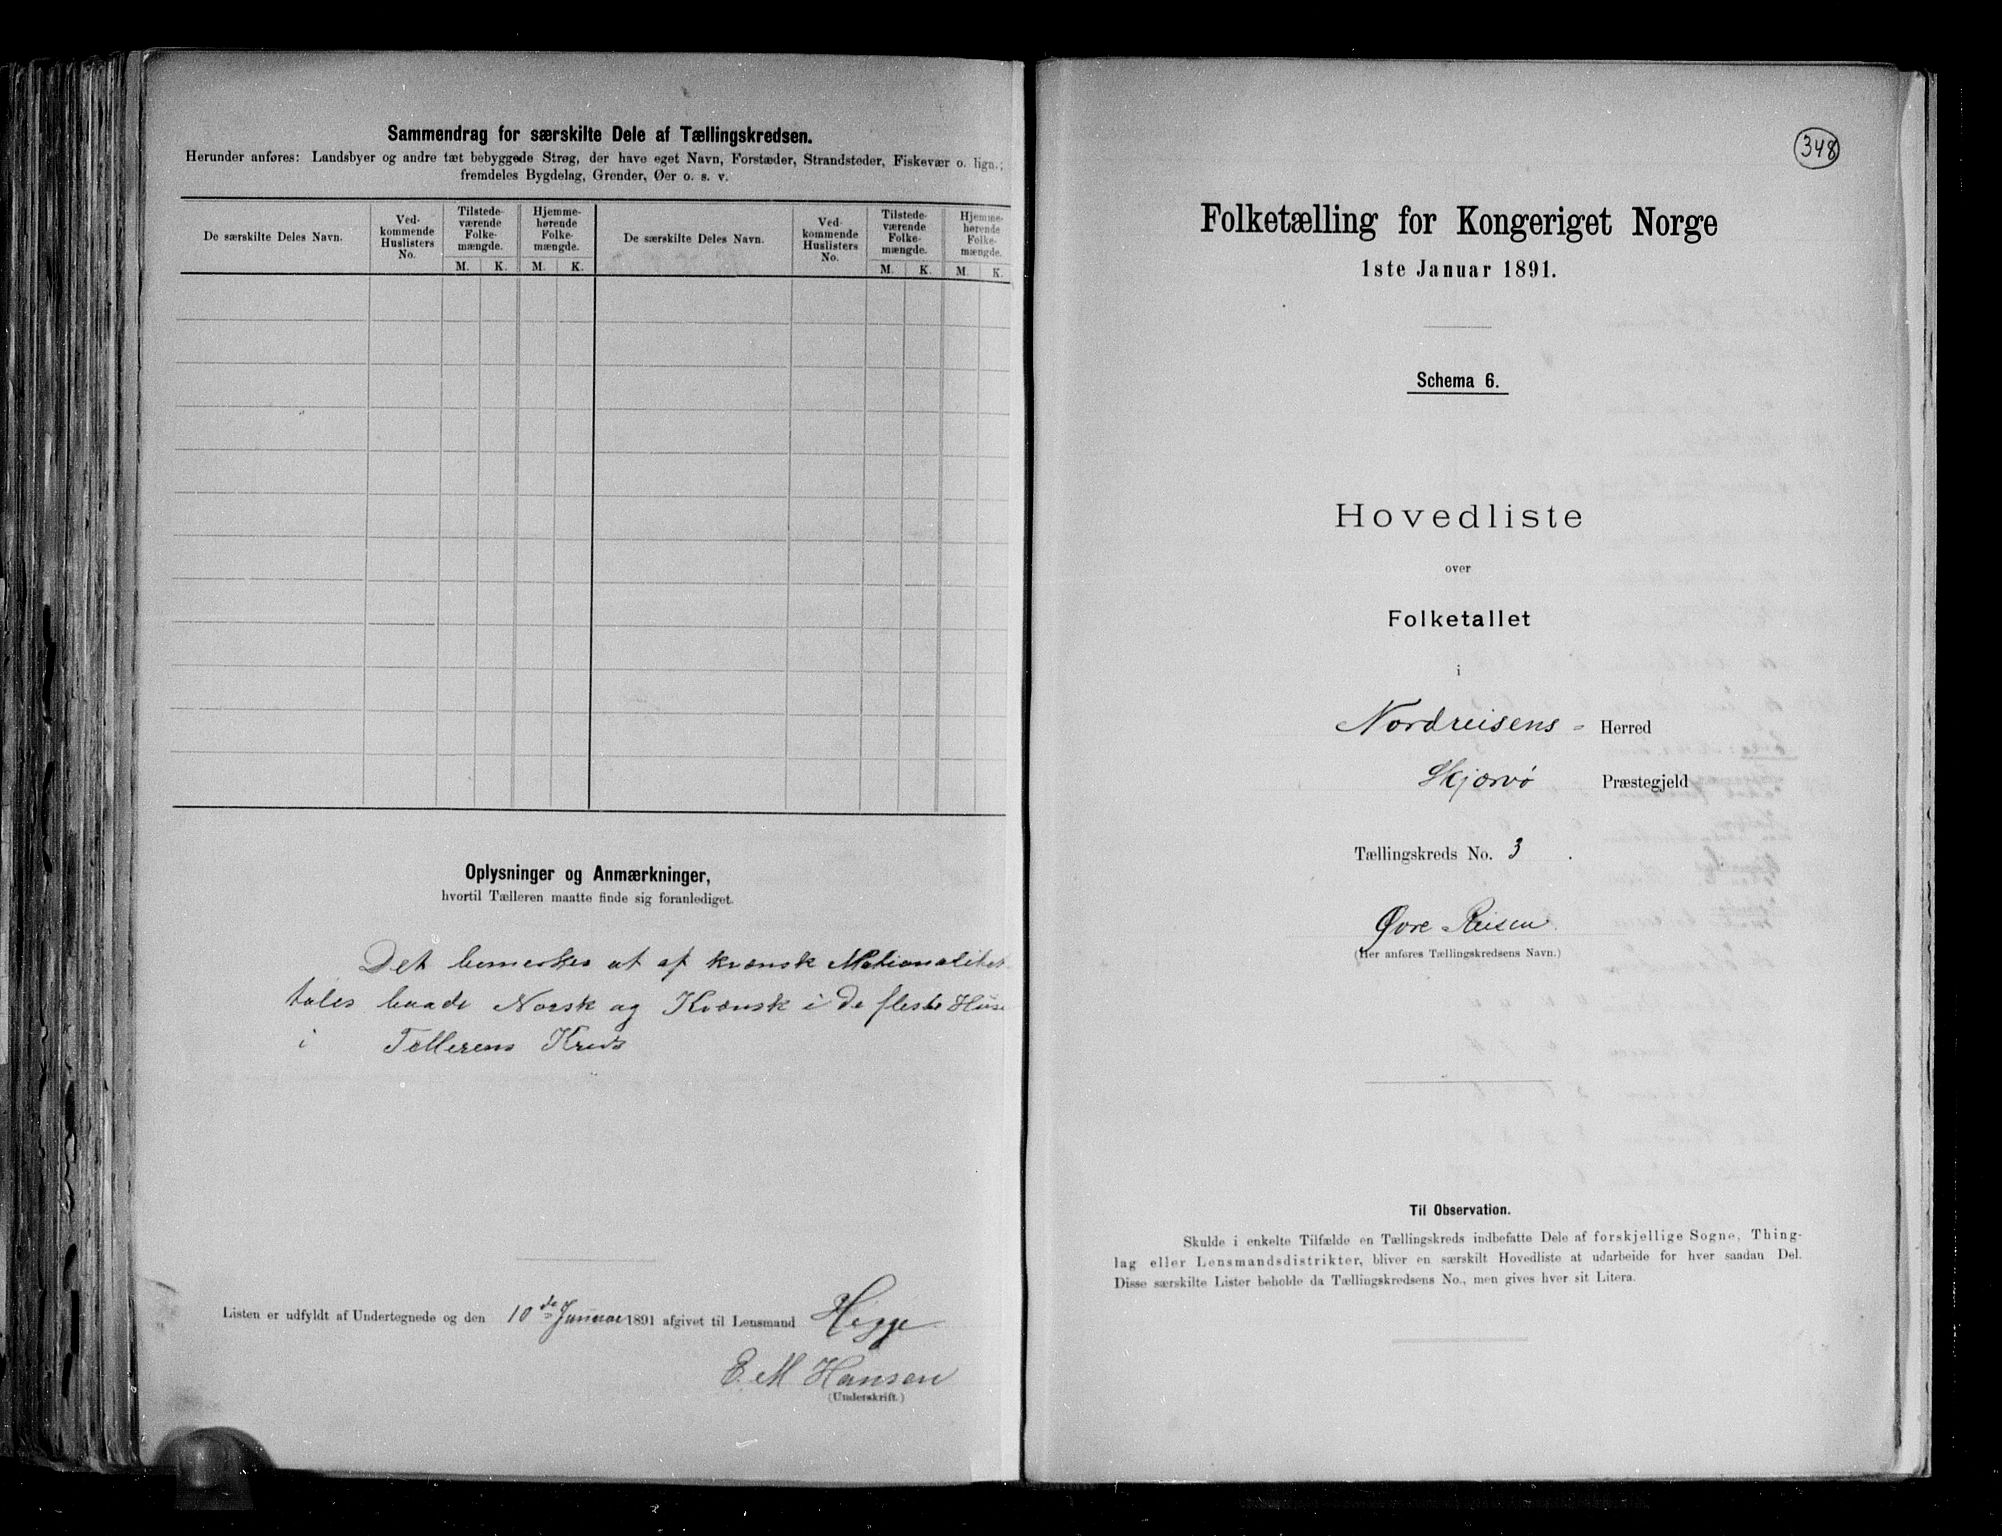 Sammendrag for særskilte Dele af Tællingskredsen.
Herunder anføres: Landsbyer og andre tæt bebyggede Strøg, der have eget Navn, Forstæder, Strandsteder, Fiskevær o. lign.;
fremdeles Bygdelag, Grender, Øer o. s. v.
De særskilte Deles Navn.
Ved-
kommende
Huslisters
No.
Tilstede-
værende
Folke-
mængde.
Hjemme-
hørende
Folke-
mængde.
M. K. M. K.
De særskilte Deles Navn.
Ved-
kommende
Huslisters
No.
Tilstede-
værende
Folke-
mængde.
Hjemme-
hørende
Folke-
mængde.
M. K. M. K.
Oplysninger og Anmærkninger,
hvortil Tælleren maatte finde sig foranlediget.
Det bemerkes at af kvænsk Nationalitet
tales baade Norsk og Kvænsk i de fleste Huse
i Tellerens Kreds
Listen er udfyldt af Undertegnede og den 10de Januar 1891 afgivet til Lensmand Higge
E. M Hansen
(Underskrift.)
348
Folketælling for Kongeriget Norge
1ste Januar 1891.
Schema 6.
Hovedliste
over
Folketallet
i
Nordreisens - Herred
Skjærvø Præstegjeld
Tællingskreds No. 3.
Øvre Reisen
(Her anføres Tællingskredsens Navn.)
Til Observation.
Skulde i enkelte Tilfælde en Tællingskreds indbefatte Dele af forskjellige Sogne, Thing-
lag eller Lensmandsdistrikter, bliver en særskilt Hovedliste at udarbeide for hver saadan Del.
Disse særskilte Lister beholde da Tællingskredsens No., men gives hver sit Litera.